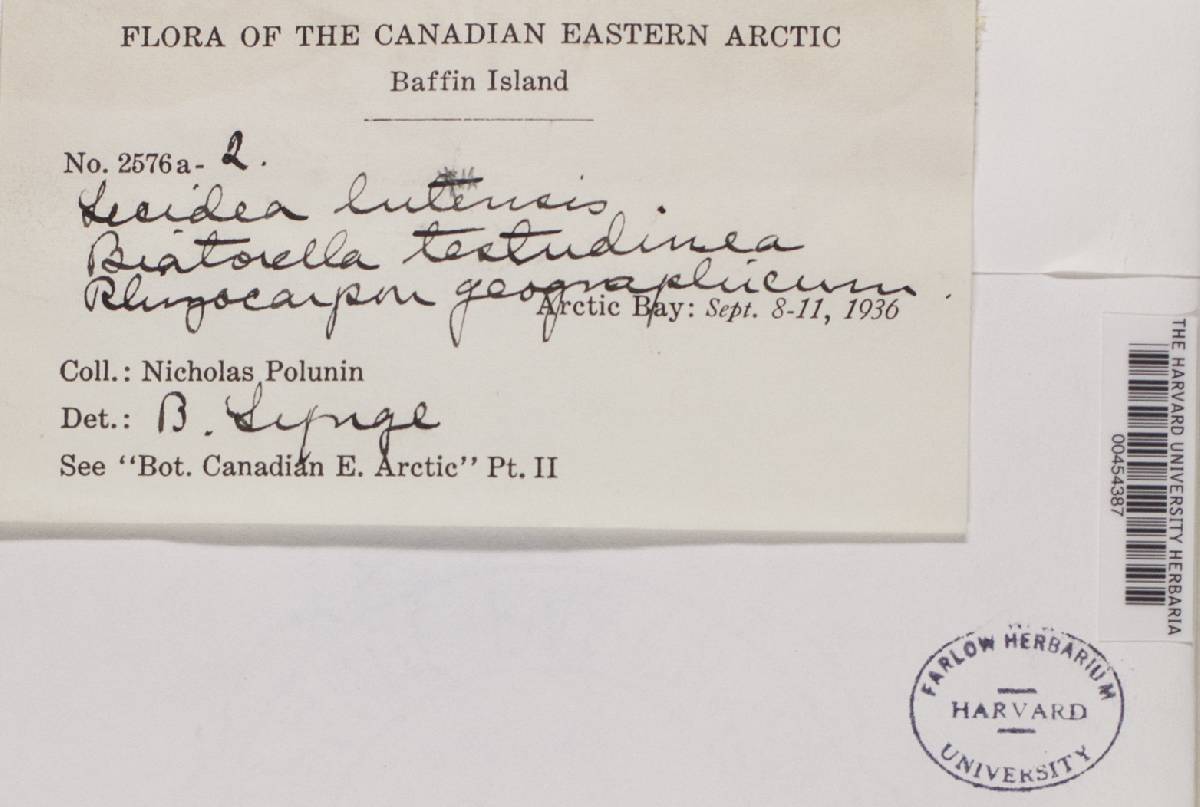 FLORA OF THE CANADIAN EASTERN ARCTIC
Baffin Island
No. 2576a- 2.
Lecidea lutensis.
Biatorella testudinea
Rhizocarpon geographicum.
Arctic Bay: Sept. 8-11, 1936
Coll.: Nicholas Polunin
Det.: B. Lynge
See “Bot. Canadian E. Arctic” Pt. II
THE HARVARD UNIVERSITY HERBARIA
00454387
FARLOW HERBARIUM
HARVARD
UNIVERSITY